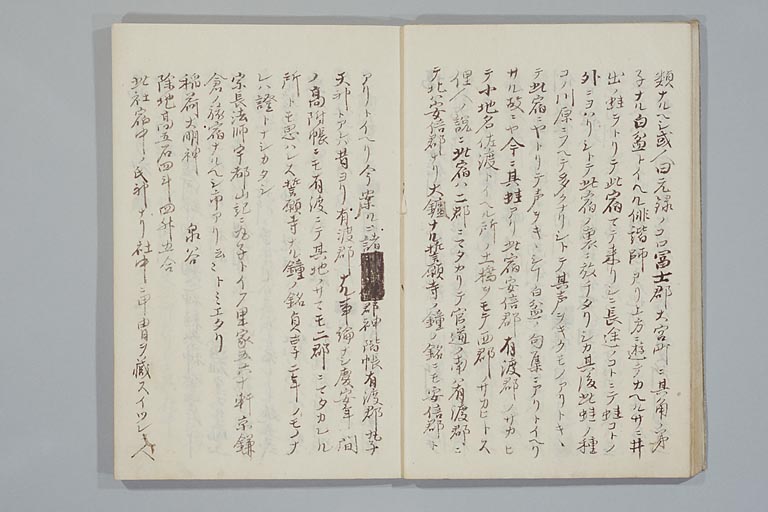 類ナルヘシ或人曰元禄ノコロ冨士郡大宮町ニ其角カ弟
子ナル白盆トイヘル俳諧師アリ上方ニ遊テカヘルサニ井
出ノ蛙ヲトリテ此宿マテ来リシニ長途ノコトニテ蛙コトノ
外ニヨハリシトテ此宿ノ裏ニ放チタリシカ其後此蛙ノ種
コノ川原ニフヘテ多クナリシトテ其声ヲキクモノアリトキヽ
テ此宿ニヤトリテ声ヲキヽシト白盆ノ句集ニアリトイヘリ
サル故ニヤ今ニ其蛙アリ此宿安倍郡有渡郡ノサカヒ
テ小地名佐渡トイヘル所ノ土橋ヲモテ両郡ノサカヒトス
俚人ノ説ニ此宿ハ二郡ニマタカリテ官道ノ南ハ有渡郡ニ
テ北ハ安倍郡ナリ大鑪ナル誓願寺ノ鐘ノ銘ニモ安倍郡ト
アリトイヘリ今案ルニ諸郡神階帳有渡郡丸子
天神トアレハ昔ヨリ有渡郡ナル事論ナシ慶安年間
ノ高附帳ニモ有渡ニテ其地ノサマモ二郡ニマタカレル
所トモ思ハレス誓願寺ナル鐘ノ銘貞享二年ノモノナ
レハ證トナシカタシ
宗長法師宇津山記ニ丸子トイフ里家五六十軒京鎌
倉ノ旅宿ナルヘシ市アリ云々トミエタリ
稲荷大明神　泉谷
除地高五石四斗四升五合
此社宿中ノ氏神ナリ社中ニ申曽ヲ蔵スイツレノ